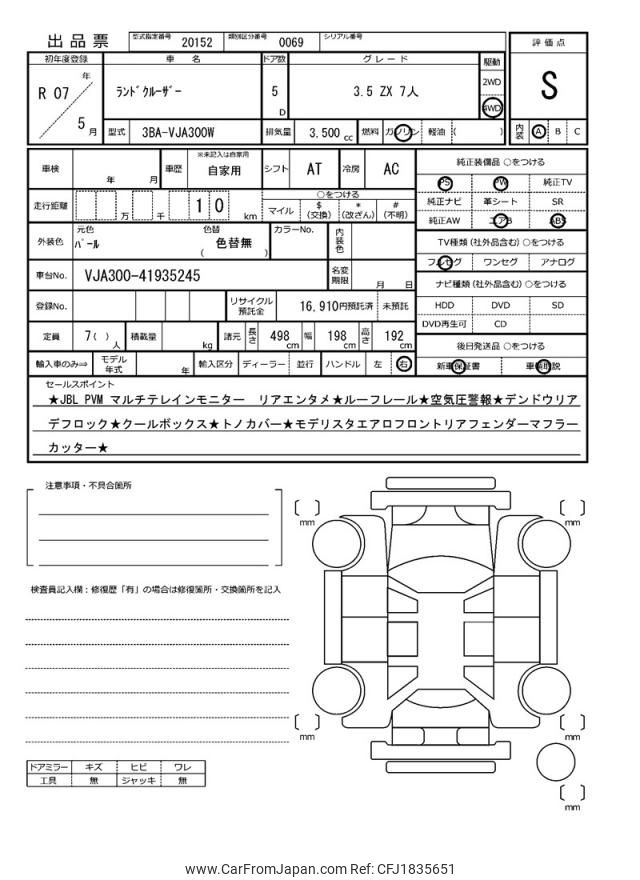 出品票
型式指定番号 20152 類別区分番号 0069 シリアル番号
評価点
初年度登録 車名 ドア数 グレード 駆動
R 07 年 5 月
ランドクルーザー 5 D 3.5 ZX 7人 2WD 4WD
S
型式 3BA-VJA300W 排気量 3.500 cc 燃料 ガソリン 軽油 ( )
内装 A B C
車検 年 月 車歴 ※未記入は自家用 自家用 シフト AT 冷房 AC
純正装備品 ○をつける
PS PW 純正TV
走行距離 万 千 1 0 km
○をつける
マイル $(交換) *(改ざん) #(不明)
純正ナビ 革シート SR
純正AW エアB ABS
外装色 元色 パール 色替 色替無 ( ) カラーNo. 内装色
TV種類 (社外品含む) ○をつける
フルセグ ワンセグ アナログ
車台No. VJA300-41935245 名変期限 月 日
ナビ種類 (社外品含む) ○をつける
登録No. リサイクル預託金 16,910円預託済 未預託
HDD DVD SD
DVD再生可 CD
定員 7( ) 人 積載量 kg 諸元 長さ 498 cm 幅 198 cm 高さ 192 cm
後日発送品 ○をつける
輸入車のみ⇒ モデル年式 年 輸入区分 ディーラー 並行 ハンドル 左 右
新車保証書 車輌取説
セールスポイント
★JBL PVM マルチテレインモニター リアエンタメ★ルーフレール★空気圧警報★デンドウリア
デフロック★クールボックス★トノカバー★モデリスタエアロフロントリアフェンダーマフラー
カッター★
注意事項・不具合箇所
検査員記入欄：修復歴「有」の場合は修復箇所・交換箇所を記入
[ ] mm
[ ] mm
[ ] mm
[ ] mm
[ ] mm
ドアミラー キズ ヒビ ワレ
工具 無 ジャッキ 無
www.CarFromJapan.com Ref: CFJ1835651